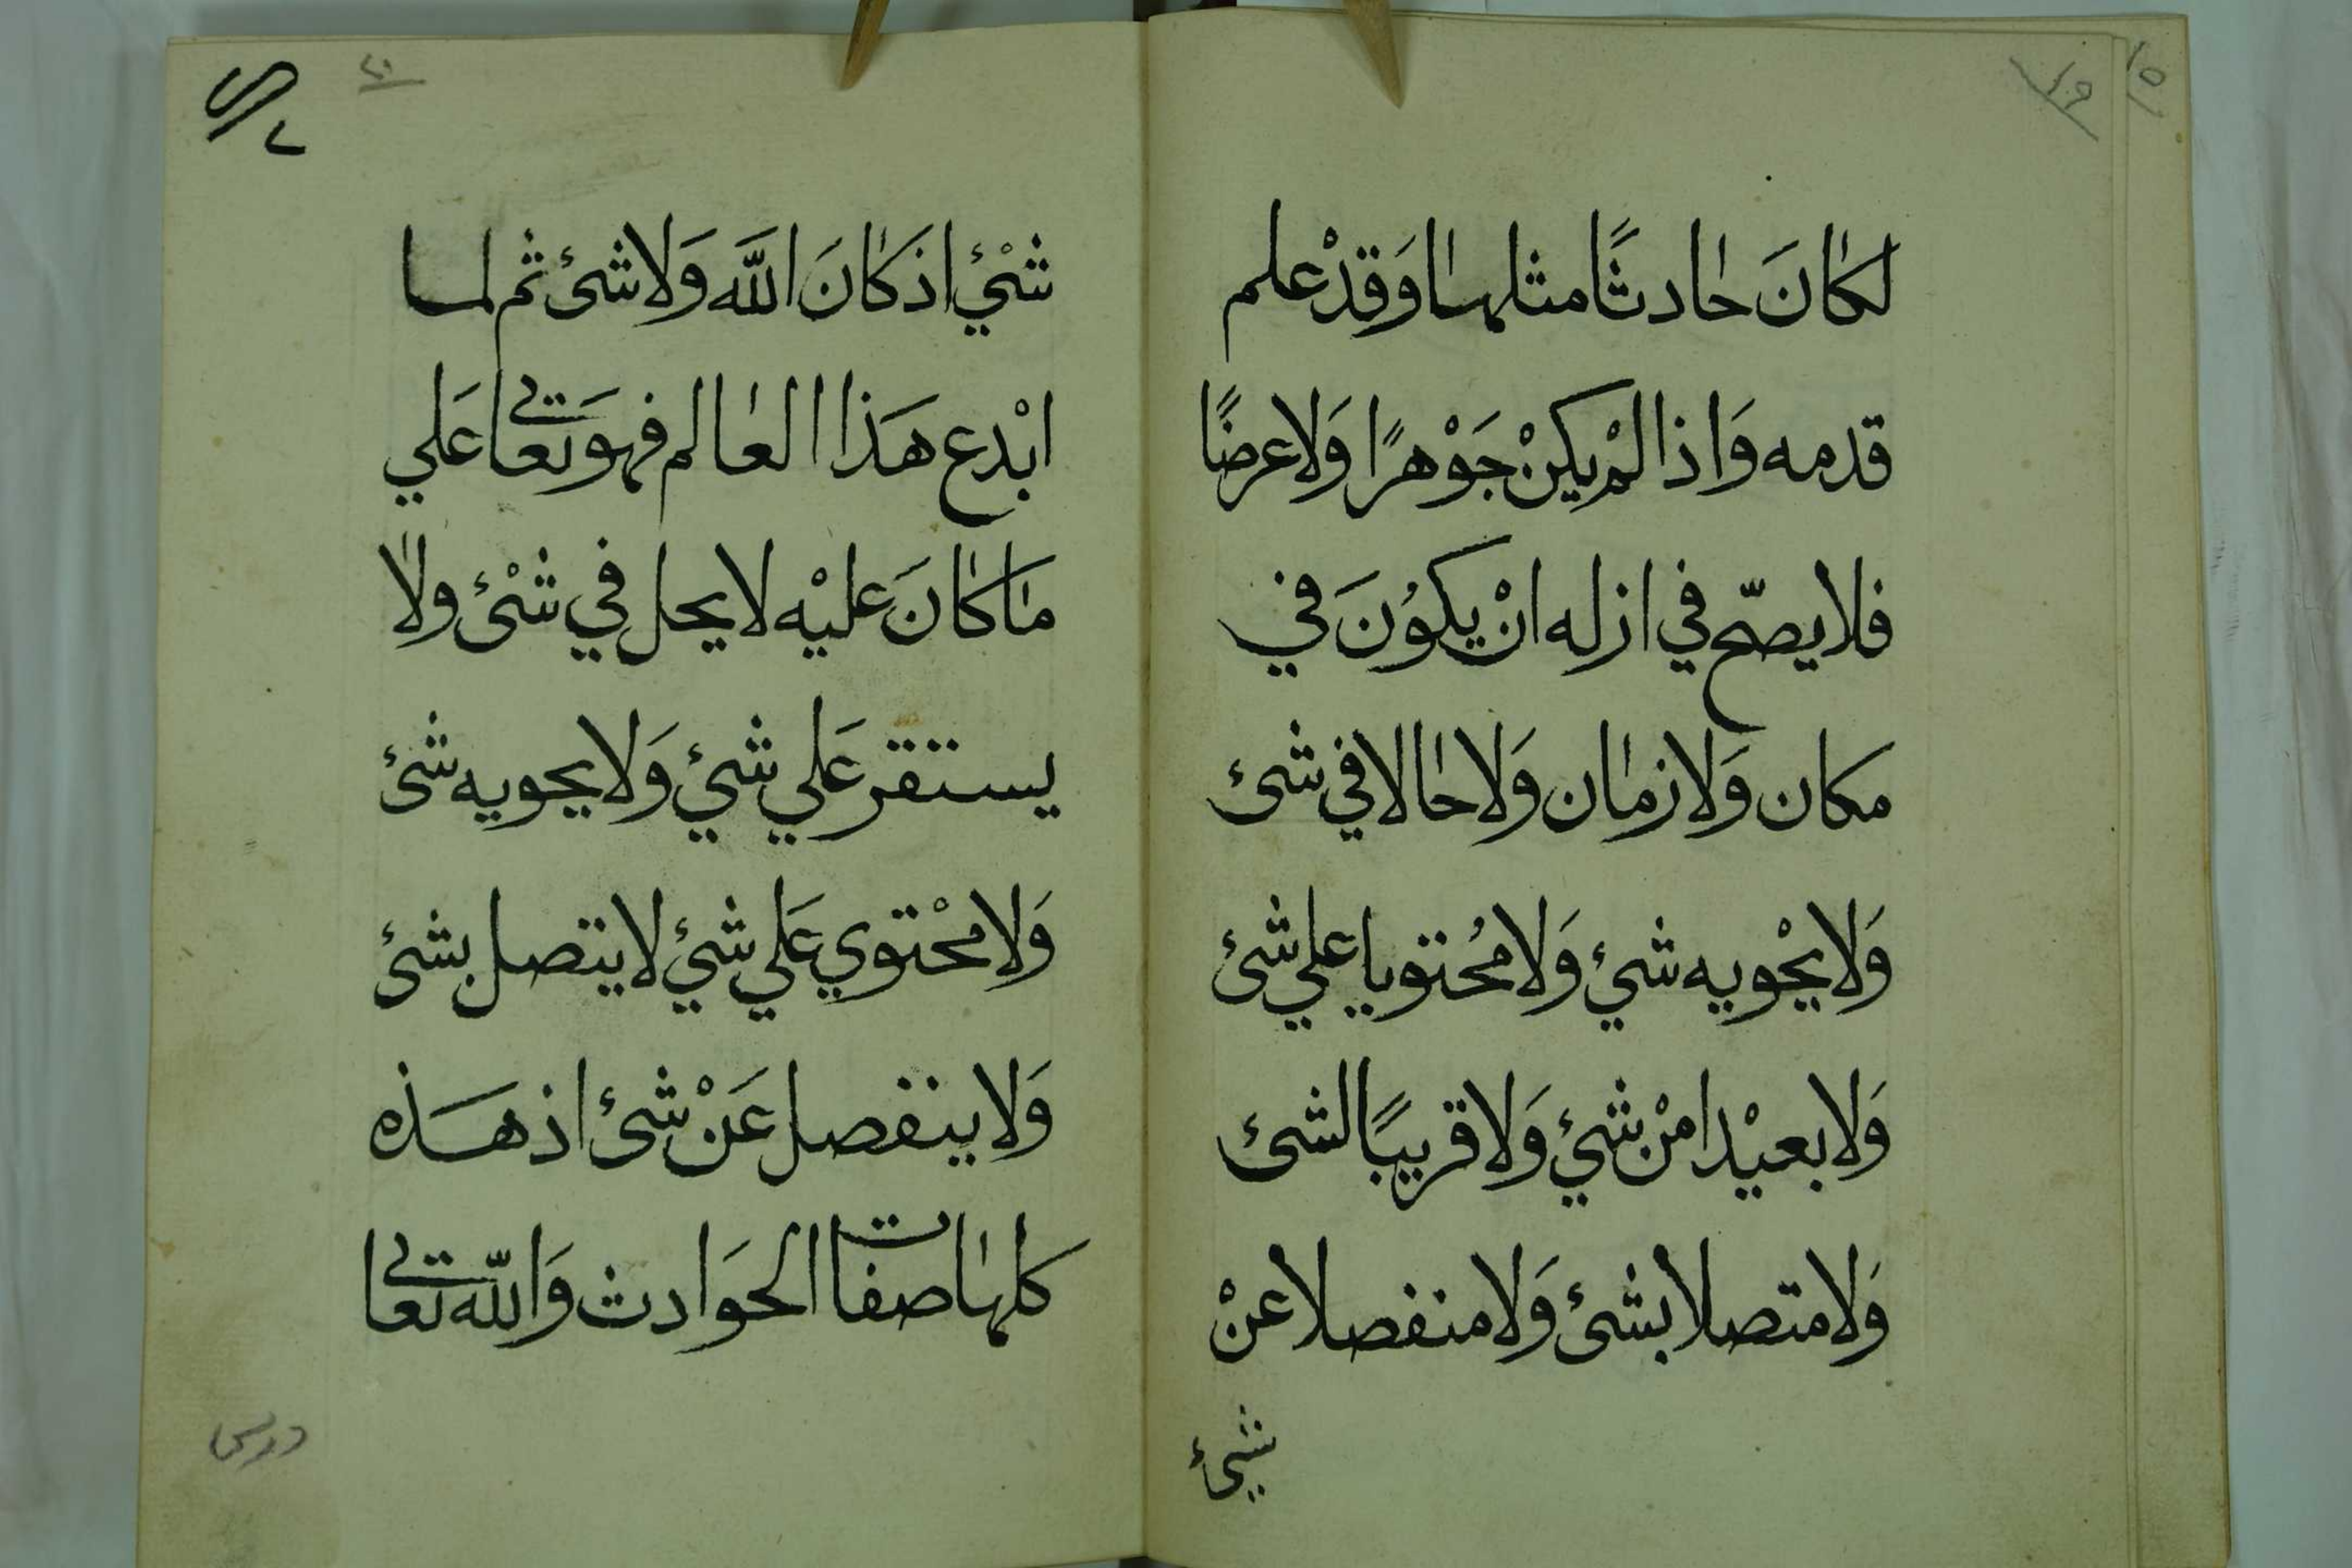 لكانَ حادثًا مثلها وَقدْ علم
قدمه وَاذا لمْ يكنْ جَوْهرًا وَلا عرضًا
فلا يصحّ في ازله انْ يكوُنَ في
مكان وَلا زمان وَلا حالا في شئ
وَلا يحْويه شيْء وَلا محُتويا علي شئ
وَلا بعيْدا منْ شيْء وَلا قريبًا لشئ
وَلا متصلا بشئ وَلا منفصلا عنْ
شيء
شيْء اذ كانَ اللَّه وَلا شئ ثم لما
ابْدع هَذا العالم فهوَ تعالى عَلي
ما كانَ عليْه لا يحل في شئْ ولا
يستقر عَلي شيْء وَلا يحويه شئ
وَلا محْتوي عَلي شيْء لا يتصل بشئ
وَلا ينفصل عَنْ شئ اذ هَذه
كلها صفات الحوَادث وَاللّه تعالى
درس